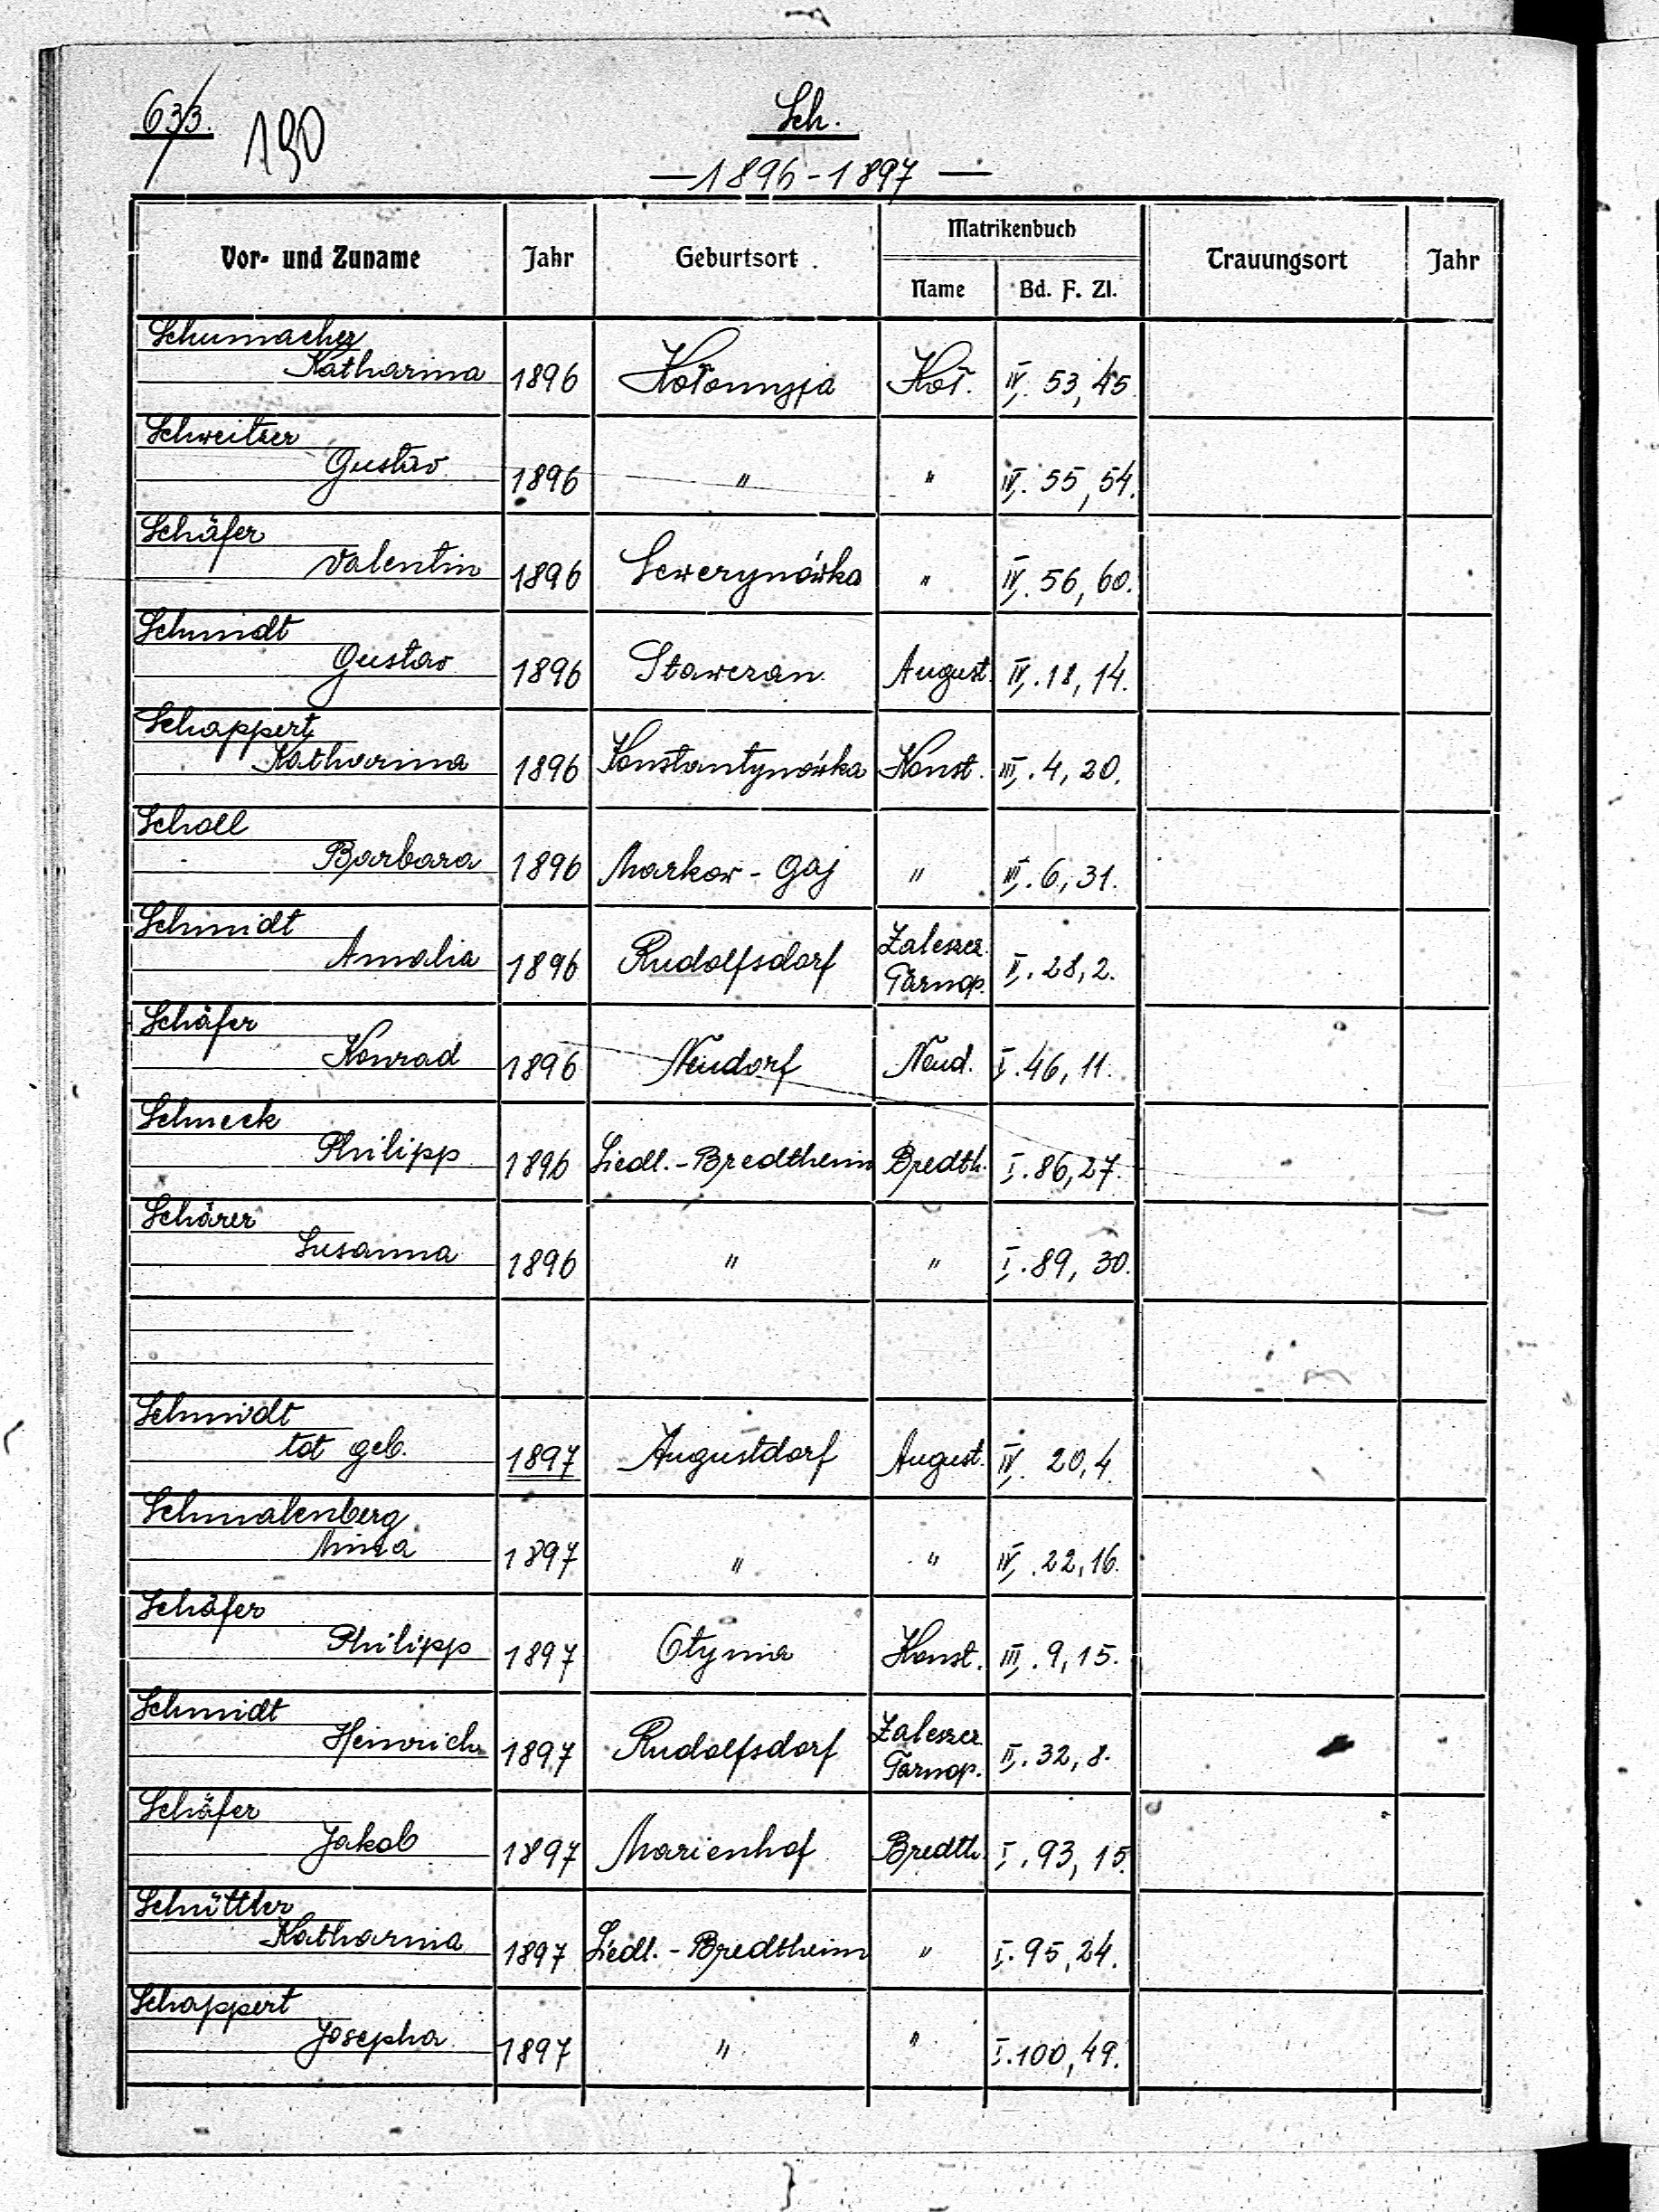 633.
190
Sch.
—1896-1897—
Vor- und Zuname Jahr Geburtsort Matrikenbuch Trauungsort Jahr
Name Bd. F. Zl.
Schumacher
Katharina 1896 Kołomyja Koł. IV. 53, 45
Schweitzer
Gustav 1896 " " IV. 55, 54.
Schäfer
Valentin 1896 Sewerynówka " IV. 56, 60.
Schmidt
Gustav 1896 Stawczan August. IV. 18, 14.
Schappert
Katharina 1896 Konstantynówka Konst. III. 4, 20.
Scholl
Barbara 1896 Markow-Gaj " III. 6, 31.
Schmidt
Amalia 1896 Rudolfsdorf Zaleszcz. Tarnop. II. 28, 2.
Schäfer
Konrad 1896 Neudorf Neud. I. 46, 11.
Schneck
Philipp 1896 Siedl.-Bredtheim Bredth. I. 86, 27.
Schärer
Susanna 1896 " " I. 89, 30.
Schmidt
tot geb. 1897 Augustdorf August. IV. 20, 4.
Schmalenberg
Mina 1897 " " IV. 22, 16.
Schäfer
Philipp 1897 Otynia Konst. III. 9, 15.
Schmidt
Heinrich 1897 Rudolfsdorf Zaleszcz. Tarnop. II. 32, 8.
Schäfer
Jakob 1897 Marienhof Bredth. I. 93, 15.
Schüttler
Katharina 1897 Siedl.-Bredtheim " I. 95, 24.
Schappert
Josepha 1897 " " I. 100, 49.